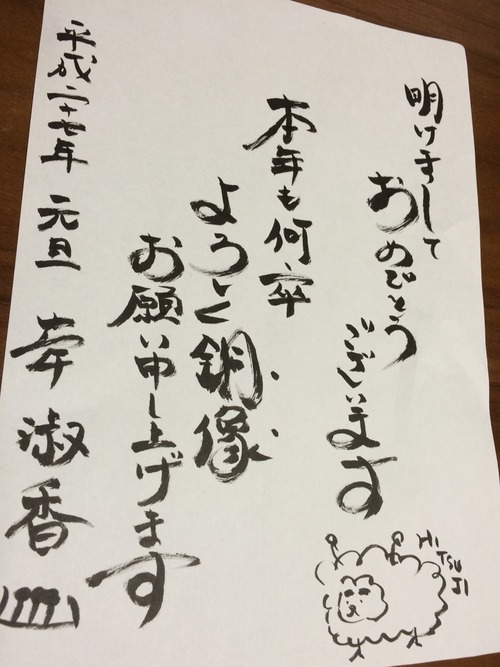 明けまして
おめでとう
ございます
本年も何卒
よろしく銅像
お願い申し上げます
平成二十七年 元旦 淑香
HI
TSU
JI